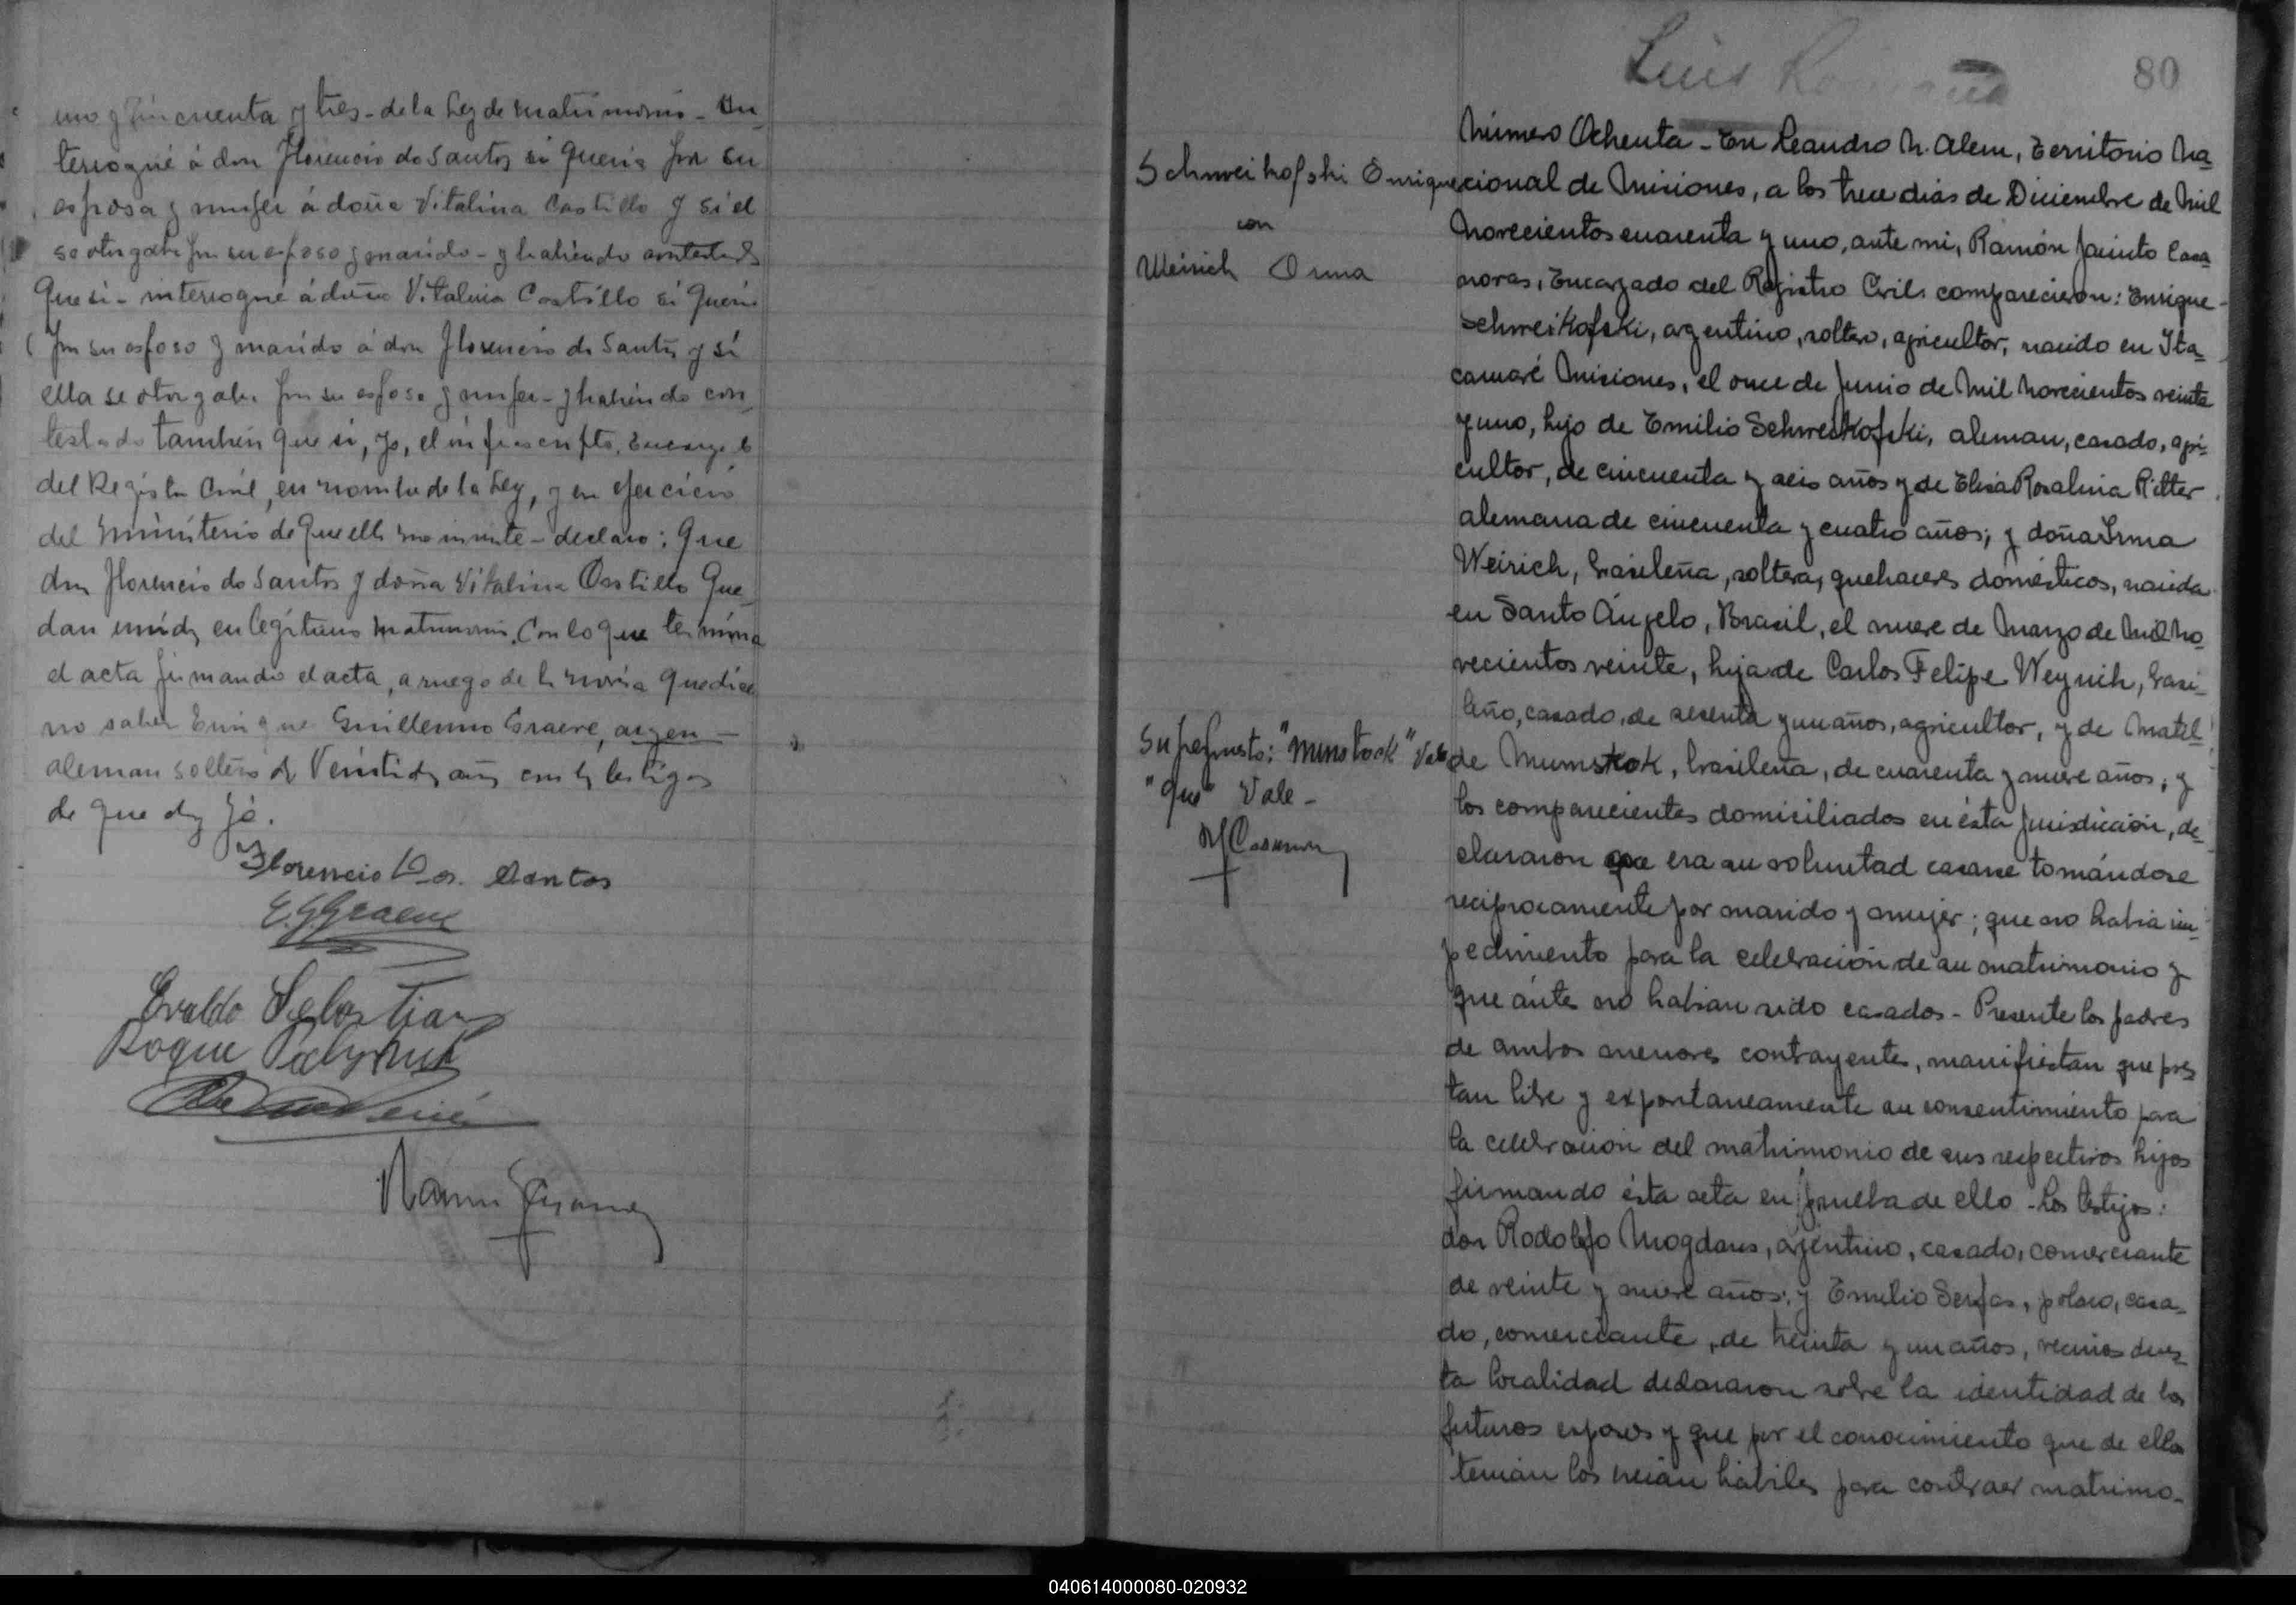 uno y cincuenta y tres - de la Ley de matrimonio - In
terrogué á don Florencio do Santos si queria por su
esposa y mujer á doña Vitalina Castillo y si el
se otorgaba por su esposo y marido - y habiendo contestado
que si - interrogué á doña Vitalina Castillo si queria
por su esposo y marido á don Florencio do Santos y si
ella se otorgaba por su esposa y mujer - y habiendo con
testado tambien que si, yo, el infrascripto, Encargado
del Registro Civil, en nombre de la Ley, y en ejercicio
del ministerio de que ella me inviste - declaro: Que
don Florencio do Santos y doña Vitalina Castillo que
dan unidos en legítimo matrimonio. Con lo que termina
el acta firmando el acta, a ruego de la novia que dice
no saber Enrique Guillermo Graeve, argen -
aleman soltero de Veintidos años con los testigos
de que doy fé.
Florencio Dos. Santos
E. G. Graeve
Evaldo Sebastiany
Roque
Ramon Casanovas
Luis
80
Schweikofski Enrique
con
Weirich Irma
Número Ochenta - En Leandro N. Alem, Territorio Na
cional de Misiones, a los trece dias de Diciembre de Mil
Novecientos cuarenta y uno, ante mi, Ramón Jacinto Casa
novas, Encargado del Registro Civil, comparecieron: Enrique
Schweikofski, argentino, soltero, agricultor, nacido en Ita
camaré Misiones, el once de Junio de Mil Novecientos veinte
y uno, hijo de Emilio Schweikofski, aleman, casado, agri-
cultor, de cincuenta y seis años y de Elisa Rosalina Ritter
alemana de cincuenta y cuatro años; y doña Irma
Weirich, brasileña, soltera, quehaceres domésticos, nacida
en Santo Ángelo, Brasil, el nueve de Marzo de Mil No
vecientos veinte, hija de Carlos Felipe Weyrich, brasi-
leño, casado, de sesenta y un años, agricultor, y de Matil
de Mumstok, brasileña, de cuarenta y nueve años; y
los comparecientes domiciliados en ésta jurisdicción, de
clararon que era su voluntad casarse tomándose
reciprocamente por marido y mujer; que no habia im-
pedimento para la celebración de su matrimonio y
que ántes no habian sido casados - Presente los padres
de ambos menores contrayentes, manifiestan que pres
tan libre y expontaneamente su consentimiento para
la celebración del matrimonio de sus respectivos hijos
firmando ésta acta en prueba de ello - Los testigos:
don Rodolfo Mogdans, argentino, casado, comerciante
de veinte y nueve años; y Emilio Serfas, polaco, casa-
do, comerciante, de treinta y un años, vecinos de es
ta localidad declararon sobre la identidad de los
futuros esposos y que por el conocimiento que de ellos
tenian los creian hábiles para contraer matrimo-
Supepuesto: "Munstock" Vale
"que" Vale -
RJCasanovas
040614000080-020932